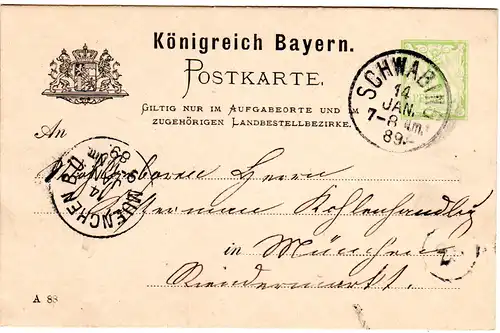 Königreich Bayern.
POSTKARTE.
GILTIG NUR IM AUFGABEORTE UND IM
ZUGEHÖRIGEN LANDBESTELLBEZIRKE.
SCHWABING
14
JAN.
7-8 Nm.
89.
An
MUENCHEN
14
JAN
89.
Herrn
Kohlenhandlg
in München
Rindermarkt.
A 88